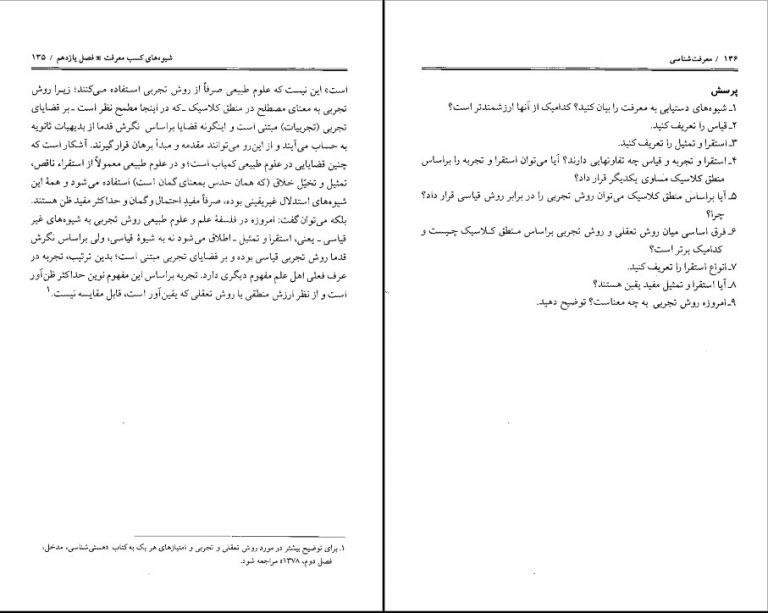 ۱۳۶ / معرفت‌شناسی
پرسش
۱ـ شیوه‌های دستیابی به معرفت را بیان کنید؟ کدامیک از آنها ارزشمندتر است؟
۲ـ قیاس را تعریف کنید.
۳ـ استقرا و تمثیل را تعریف کنید.
۴ـ استقرا و تجربه و قیاس چه تفاوتهایی دارند؟ آیا می‌توان استقرا و تجربه را براساس
منطق کلاسیک مساوی یکدیگر قرار داد؟
۵ـ آیا براساس منطق کلاسیک می‌توان روش تجربی را در برابر روش قیاسی قرار داد؟
چرا؟
۶ـ فرق اساسی میان روش تعقلی و روش تجربی براساس منطق کلاسیک چیست و
کدامیک برتر است؟
۷ـ انواع استقرا را تعریف کنید.
۸ـ آیا استقرا و تمثیل مفید یقین هستند؟
۹ـ امروزه روش تجربی به چه معناست؟ توضیح دهید.
شیوه‌های کسب معرفت ※ فصل یازدهم / ۱۳۵
است» این نیست که علوم طبیعی صرفاً از روش تجربی استفاده می‌کنند؛ زیرا روش
تجربی به معنای مصطلح در منطق کلاسیک ـ که در اینجا مطمح نظر است ـ بر قضایای
تجربی (تجربیات) مبتنی است و اینگونه قضایا براساس نگرش قدما از بدیهیات ثانویه
به حساب می‌آیند و از این‌رو می‌توانند مقدمه و مبدأ برهان قرار گیرند. آشکار است که
چنین قضایایی در علوم طبیعی کمیاب است؛ و در علوم طبیعی معمولاً از استقراء ناقص،
تمثیل و تخیّل خلاق (که همان حدس بمعنای گمان است) استفاده می‌شود و همهٔ این
شیوه‌های استدلال غیریقینی بوده، صرفاً مفیدِ احتمال و گمان و حداکثر مفید ظن هستند.
بلکه می‌توان گفت: امروزه در فلسفهٔ علم و علوم طبیعی روش تجربی به شیوه‌های غیر
قیاسی ـ یعنی، استقرا و تمثیل ـ اطلاق می‌شود نه به شیوهٔ قیاسی، ولی براساس نگرش
قدما روش تجربی قیاسی بوده و بر قضایای تجربی مبتنی است؛ بدین ترتیب، تجربه در
عرف فعلی اهل علم مفهوم دیگری دارد. تجربه براساس این مفهوم نوین حداکثر ظن‌آور
است و از نظر ارزش منطقی با روش تعقلی که یقین‌آور است، قابل مقایسه نیست.۱
۱. برای توضیح بیشتر در مورد روش تعقلی و تجربی و امتیازهای هر یک به کتاب «هستی‌شناسی، مدخل،
فصل دوم، ۱۳۷۸» مراجعه شود.